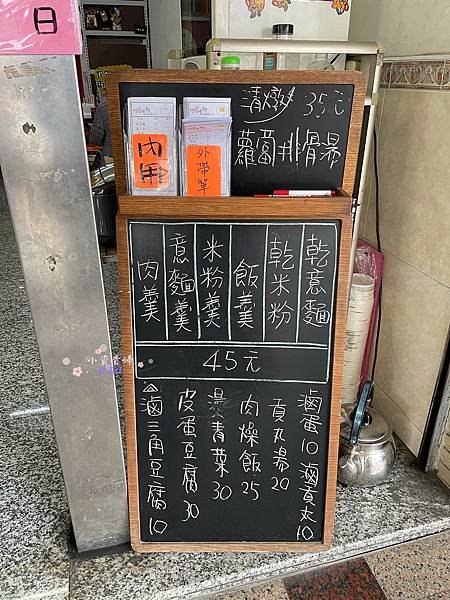 日
清燉 35元
蘿蔔排骨湯
內用
外帶單
乾意麵
乾米粉
飯羹
米粉羹
意麵羹
肉羹
45元
滷蛋10 滷貢丸10
貢丸湯20
肉燥飯25
燙青菜30
皮蛋豆腐30
滷三角豆腐10
小資貴婦